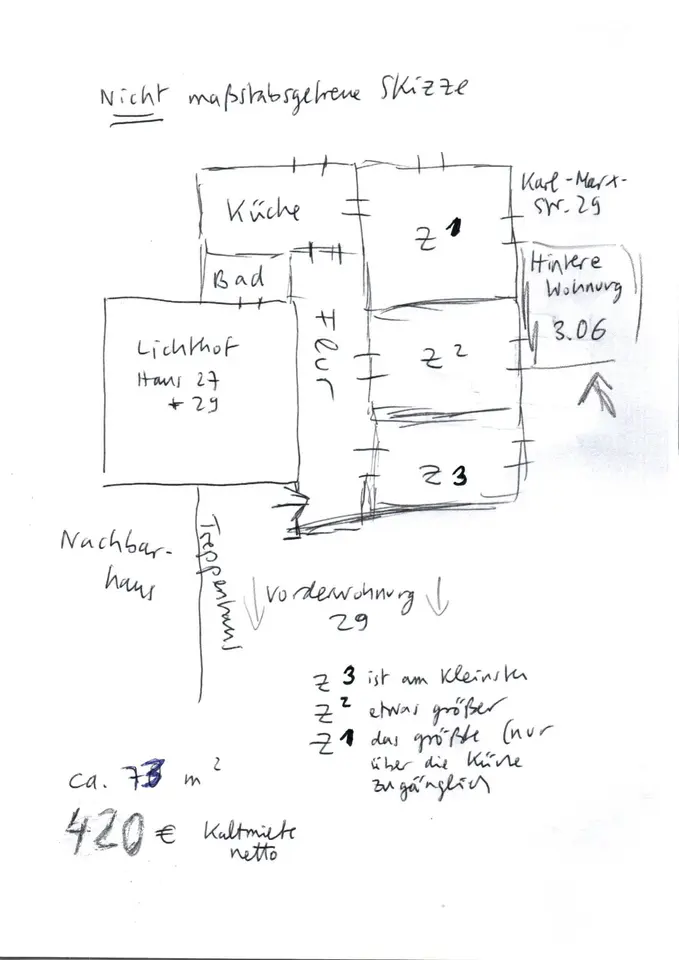 Nicht maßstabsgetreue Skizze
Küche
Z 1
Karl-Marx-
Str. 29
Bad
Hintere
Wohnung
3.06
Flur
Lichthof
Haus 27
+ 29
Z 2
Z 3
Nachbar-
haus
Treppenhaus
Vorderwohnung
29
Z 3 ist am Kleinsten
Z 2 etwas größer
Z 1 das größte (nur
über die Küche
zugänglich
ca. 73 m²
420 € Kaltmiete
netto